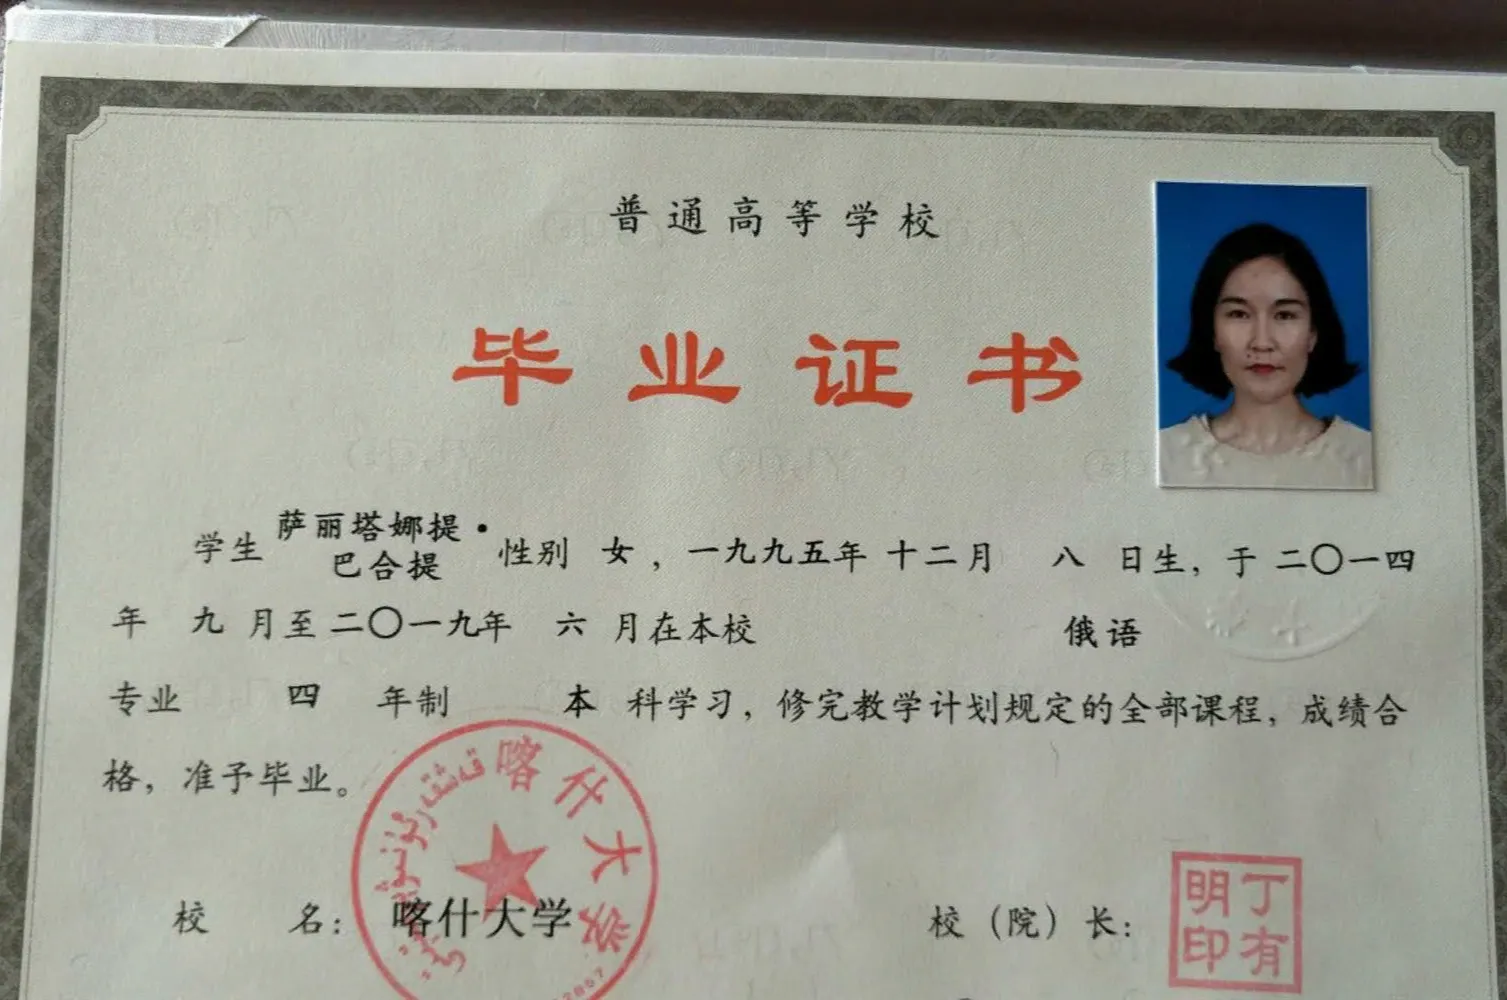 普通高等学校
毕业证书
学生 萨丽塔娜提·巴合提 性别 女，一九九五年 十二月 八 日生，于 二〇一四
年 九 月至 二〇一九年 六 月在本校 俄语
专业 四 年制 本 科学习，修完教学计划规定的全部课程，成绩合
格，准予毕业。
喀什大学
校 名：喀什大学
校（院）长：
丁有明印